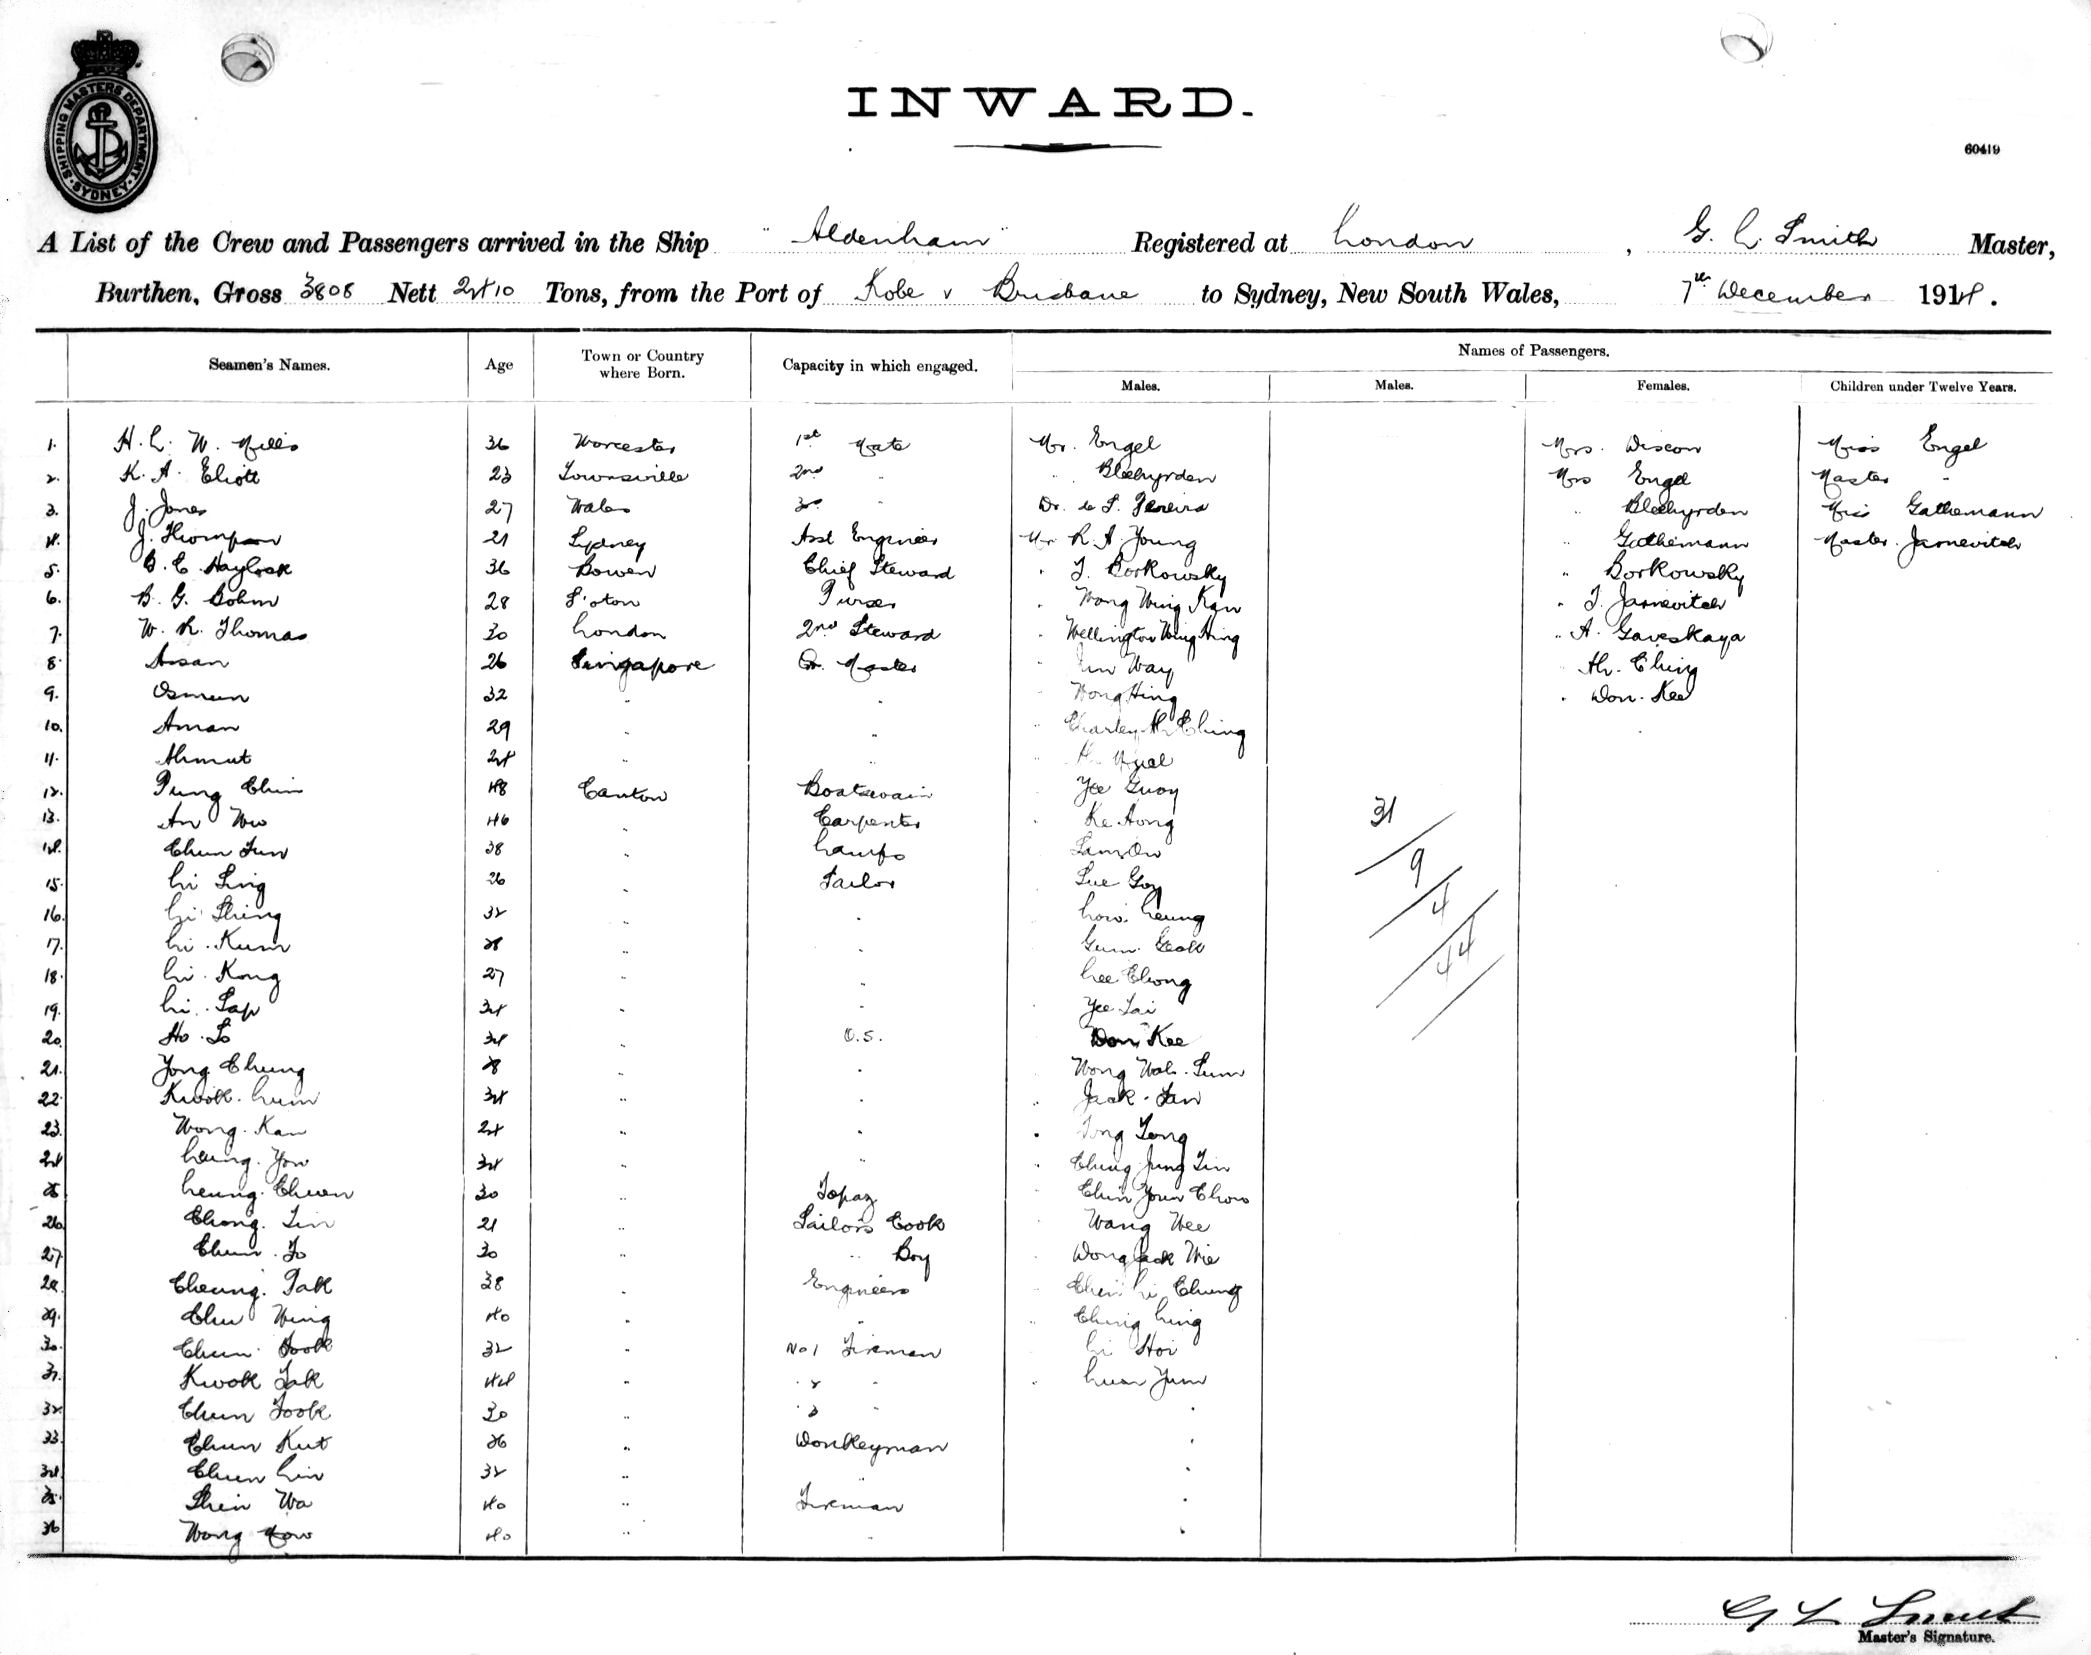 SHIPPING MASTERS DEPARTMENT · SYDNEY ·
INWARD.
60419
A List of the Crew and Passengers arrived in the Ship "Aldenham" Registered at London, G. L. Smith Master,
Burthen, Gross 3808 Nett 2410 Tons, from the Port of Kobe v Brisbane to Sydney, New South Wales, 7th December 1914.
Seamen's Names. Age Town or Country where Born. Capacity in which engaged. Names of Passengers.
Males. Males. Females. Children under Twelve Years.
1. H. L. W. Mills 36 Worcester 1st Mate Mr. Engel Mrs. Discon Miss Engel
2. K. A. Eliott 23 Townsville 2nd " " Blechyrden Mrs Engel Master "
3. J. Jones 27 Wales 3rd Dr. de S. Pereira " Blechyrden Miss Gathemann
4. J. Thompson 21 Sydney Asst Engineer Mr R. A. Young " Gathemann Master Jasnevitch
5. B. E. Haylock 36 Bowen Chief Steward " J. Borkowsky " Borkowsky
6. B. G. Bohm 28 S'oton Purser " Wong Wing Kan " J. Jasnevitch
7. W. R. Thomas 30 London 2nd Steward " Wellington Wing Hing " A. Gaveskaya
8. Assan 26 Singapore Qr. Master " Way " Ah. Ching
9. Osman 32 " " " Wong Hing " Don. Kee
10. Aman 29 " " " Charley Ah Ching
11. Ahmut 24 " "
12. Pung Chin 48 Canton Boatswain Yee Guoy
13. Ah Wu 46 " Carpenter Ke Hong 31
14. Chun Sun 38 " Lamps Sam On 9
15. Li Sing 26 " Sailor Sue Goy 4
16. Li Shing 32 " " How Leung
17. Li Kum 28 " " Gum 44
18. Li Kong 27 " " Lee Chong
19. Li Sap 34 " " Yee Lai
20. Ho So 34 " O.S. Don Kee
21. Yong Chung 28 " " Wong Wah Sum
22. Kwok Lum 34 " " " Jack San
23. Wong Kan 24 " " " Tong Tong
24. Leung Yow 34 " " " Ching Jung Tin
25. Leung Chuen 30 " Topaz " Chin Youn Chow
26. Chong Tin 21 " Sailors Cook " Wang Wee
27. Chun To 30 " " Boy " Wong Jack Wie
28. Cheung Pak 38 " Engineers " Chin Li Chung
29. Chu Wing 40 " " " Ching Ling
30. Chun Fook 32 " No 1 Fireman " Li Hoi
31. Kwok Tak 44 " " 2 " " Luen Yum
32. Chun Fook 30 " " 3 "
33. Chun Kut 36 " Donkeyman
34. Chun Lin 32 " "
35. Shin Wa 40 " Fireman
36 Wong Mow 40 " "
G L Smith
Master's Signature.